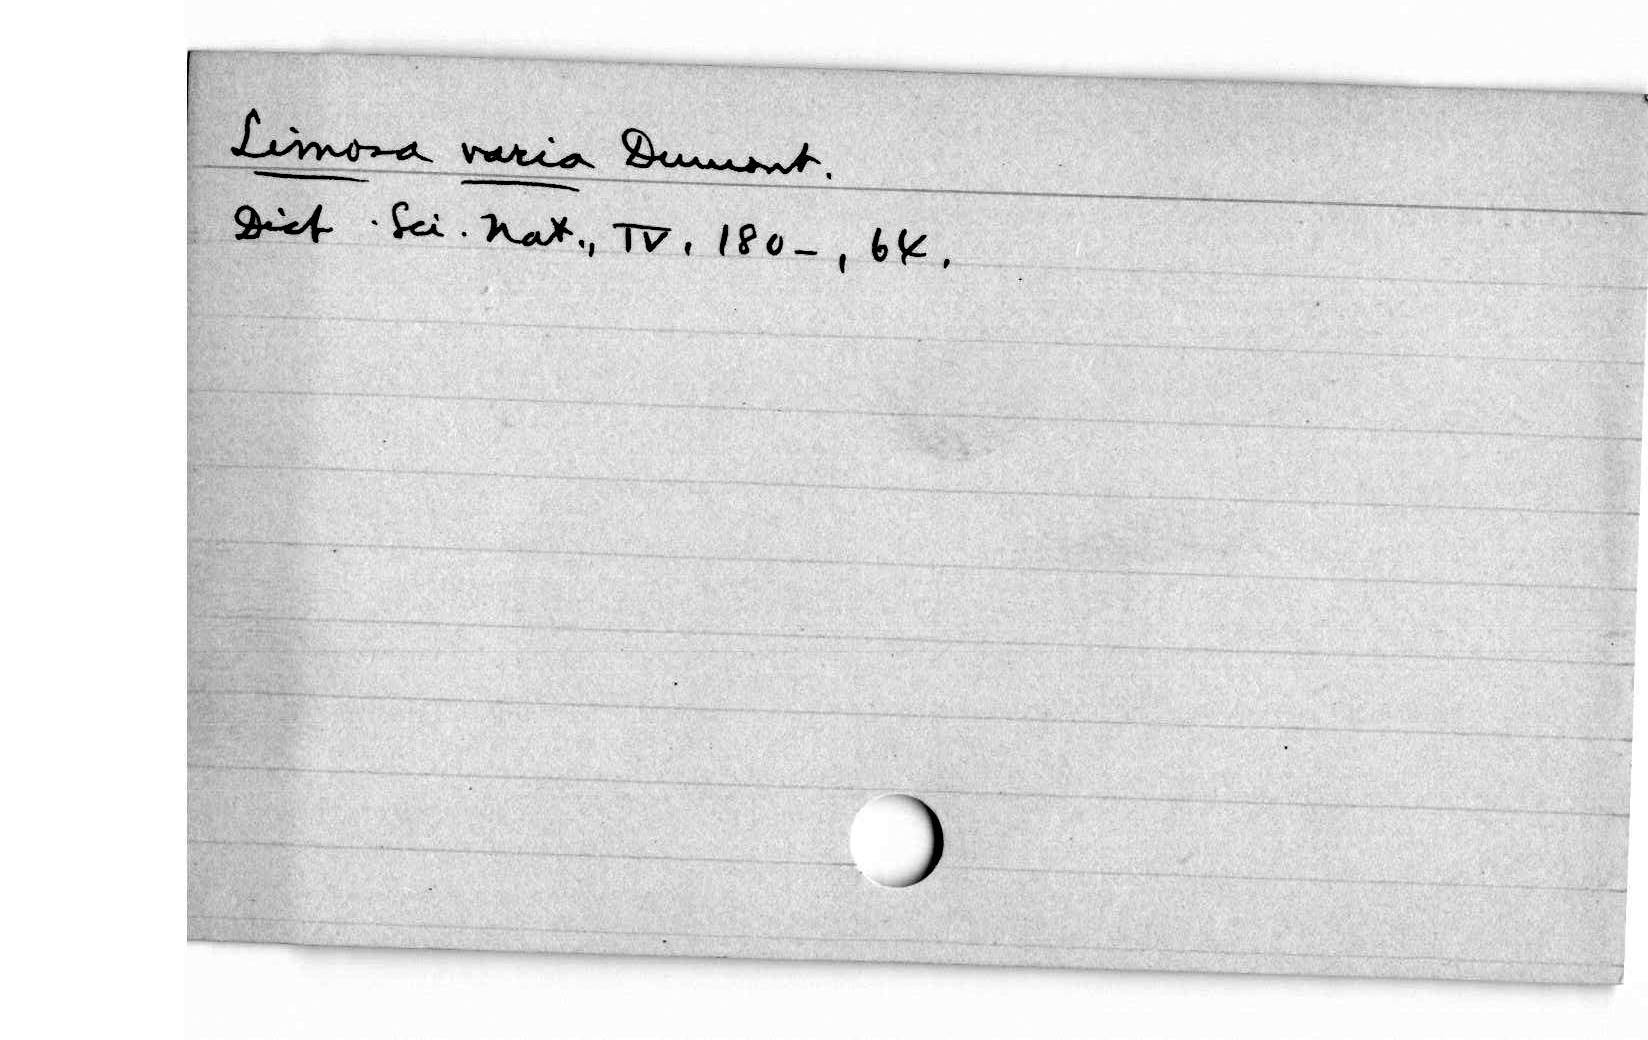 Limosa varia Dumont.
Dict. Sci. Nat., IV, 180-, 64.